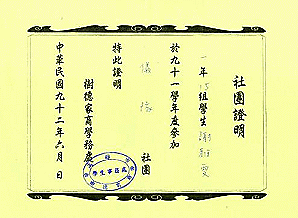 社團證明
一年15組學生謝
於九十一學年度參加
儀隊 社團
特此證明
樹德家商學務處
中華民國九十二年六月 日